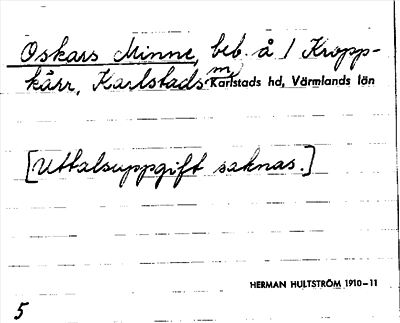 Oskars Minne, beb. å 1 Kropp-
kärr, Karlstads m, Karlstads hd, Värmlands län
[Uttalsuppgift saknas.]
HERMAN HULTSTRÖM 1910–11
5